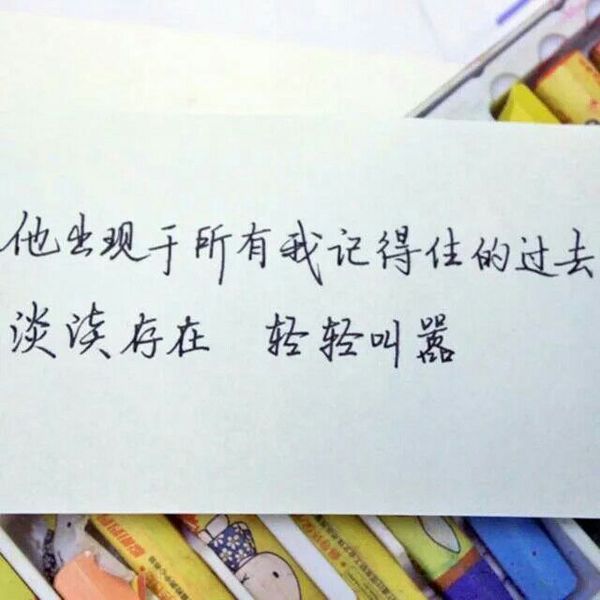 他出现于所有我记得住的过去
淡淡存在 轻轻叫嚣